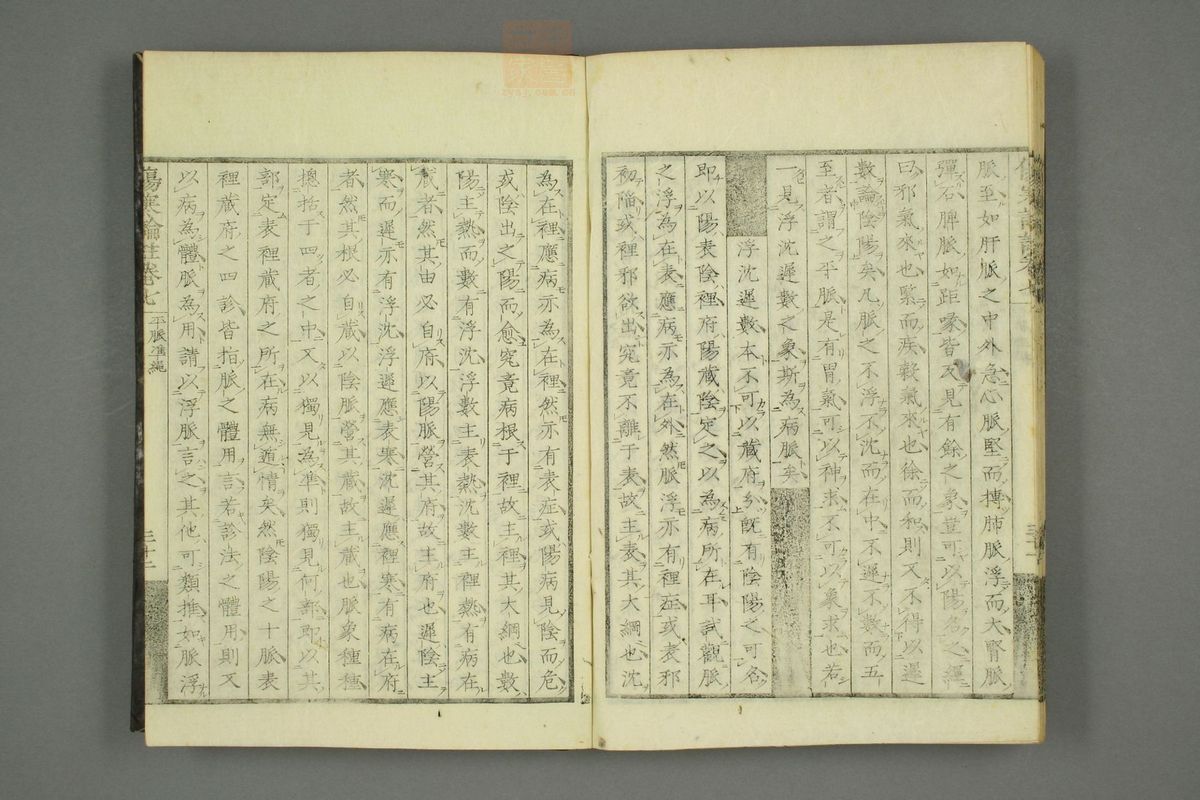 脈至如肝脈之中外急心脈堅而摶肺脈浮而大腎脈
彈石脾脈如距喙皆又見有餘之象豈可以陽名之經
曰邪氣來也緊而疾穀氣來也徐而和則又不得以遲
數論陰陽矣凡脈之不浮不沈而在中不遲不數而五
至者謂之平脈是有胃氣可以神求不可以象求也若
一見浮沈遲數之象斯為病脈矣
浮沈遲數本不可以藏府分既有陰陽之可名
即以陽表陰裡府陽藏陰定之以為病所在耳試觀脈
之浮為在表應病亦為在外然脈浮亦有裡症或表邪
初陷或裡邪欲出究竟不離于表故主表其大綱也沈
為在裡應病亦為在裡然亦有表症或陽病見陰而危
或陰出之陽而愈究竟病根于裡故主裡其大綱也數
陽主熱而數有浮沈浮數主表熱沈數主裡熱有病在
藏者然其由必自府以陽脈營其府故主府也遲陰主
寒而遲亦有浮沈浮遲應表寒沈遲應裡寒有病在府
者然其根必自藏以陰脈營其藏故主藏也脈象種種
摠括于四者之中又以獨見為準則獨見何部即以其
部定表裡藏府之所在病無遁情矣然陰陽之十脈表
裡藏府之四診皆指脈之體用言若診法之體用則又
以病為體脈為用請以浮脈言之其他可類推如脈浮
傷寒論註卷七
平脈準繩